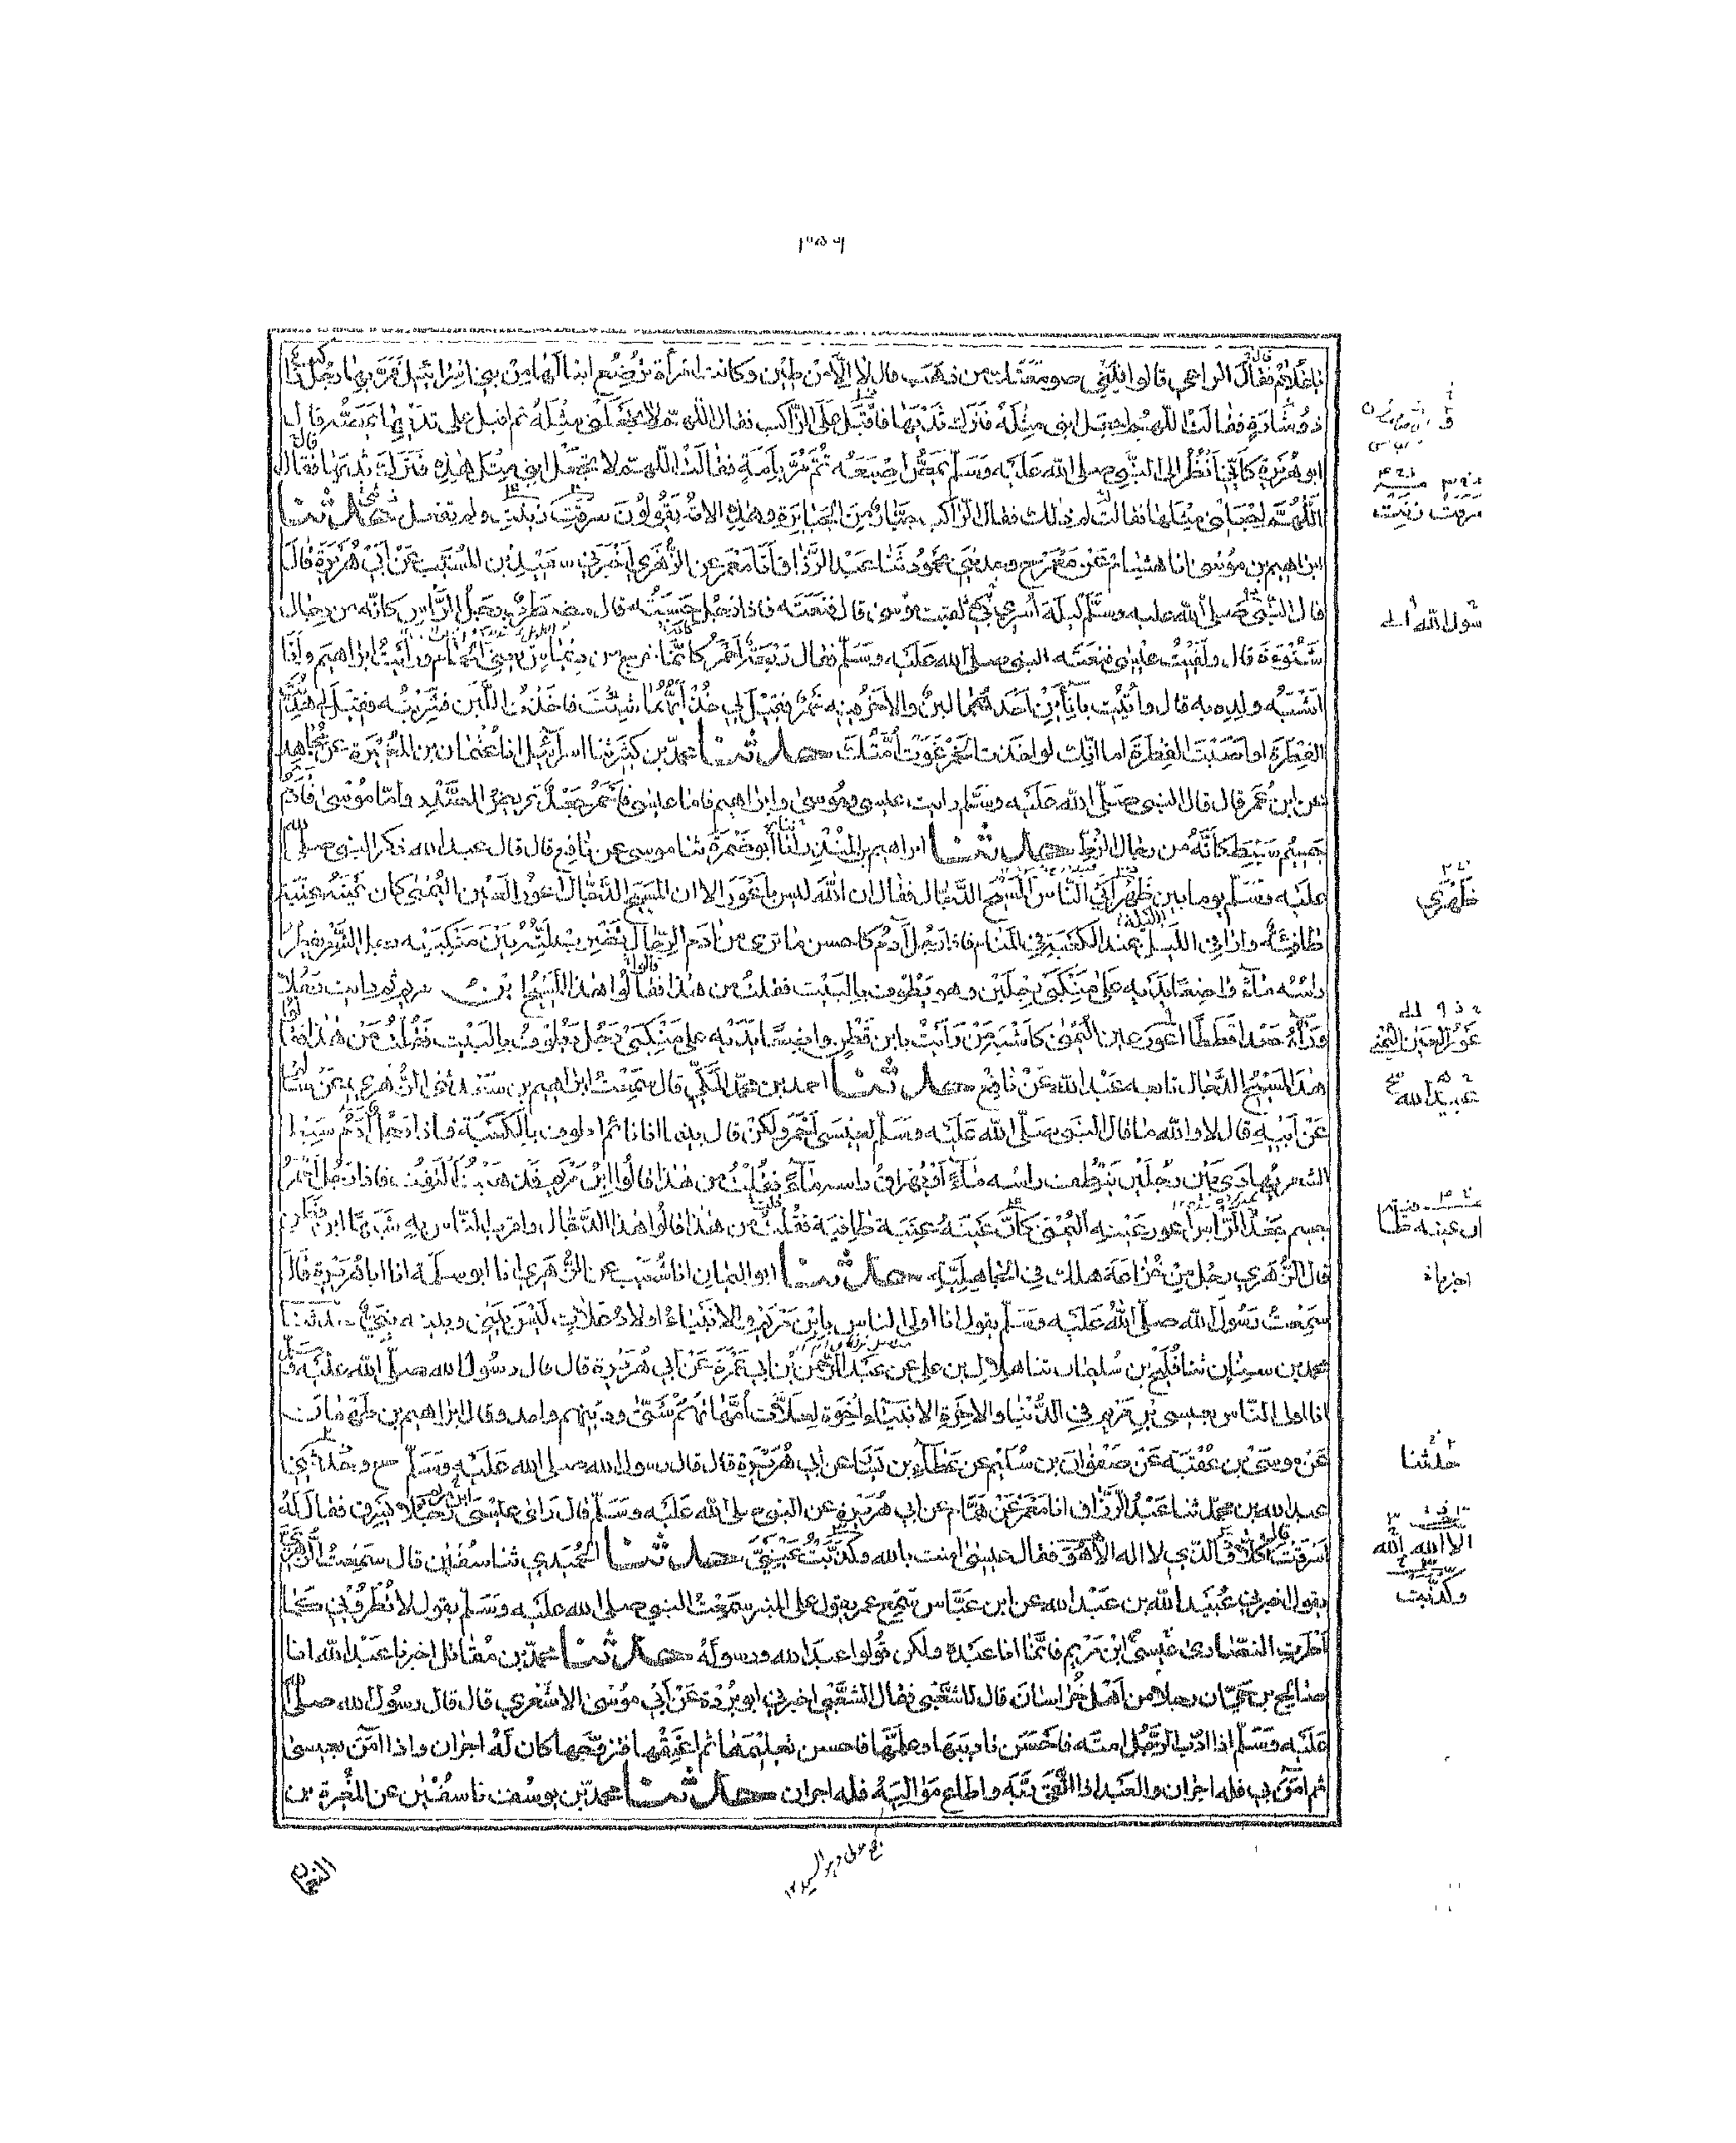 يا غلام فقال الراعي قالوا نبني صومعتك من ذهب قال لا إلا من طين وكانت امرأة ترضع ابنا لها من بني إسرائيل فمر بها رجل راكب
ذو شارة فقالت اللهم اجعل ابني مثله فترك ثديها فأقبل على الراكب فقال اللهم لا تجعلني مثله ثم أقبل على ثديها يمصه قال
أبو هريرة كأني أنظر إلى النبي صلى الله عليه وسلم يمص إصبعه ثم مر بأمة فقالت اللهم لا تجعل ابني مثل هذه فترك ثديها فقال
اللهم اجعلني مثلها فقالت له ذلك فقال الراكب جبار من الجبابرة وهذه الأمة يقولون سرقت زنيت ولم تفعل حدثنا
إبراهيم بن موسى أنا هشام عن معمر ح وحدثني محمود ثنا عبد الرزاق أنا معمر عن الزهري أخبرني سعيد بن المسيب عن أبي هريرة قال
قال النبي صلى الله عليه وسلم ليلة أسري بي لقيت موسى قال فنعته فإذا رجل حسبته قال مضطرب رجل الرأس كأنه من رجال
شنوءة قال ولقيت عيسى فنعته النبي صلى الله عليه وسلم فقال ربعة أحمر كأنما خرج من ديماس يعني الحمام ورأيت إبراهيم وأنا
أشبه ولده به قال وأتيت بإناءين أحدهما لبن والآخر فيه خمر فقيل لي خذ أيهما شئت فأخذت اللبن فشربته فقيل لي هديت
الفطرة أو أصبت الفطرة أما إنك لو أخذت الخمر غوت أمتك حدثنا محمد بن كثير ثنا إسرائيل أنا عثمان بن المغيرة عن مجاهد
عن ابن عمر قال قال النبي صلى الله عليه وسلم رأيت عيسى وموسى وإبراهيم فأما عيسى فأحمر جعد عريض الصدر وأما موسى فآدم
جسيم سبط كأنه من رجال الزط حدثنا إبراهيم بن المنذر ثنا أبو ضمرة ثنا موسى عن نافع قال قال عبد الله ذكر النبي صلى الله
عليه وسلم يوما بين ظهراني الناس المسيح الدجال فقال إن الله ليس بأعور ألا إن المسيح الدجال أعور العين اليمنى كأن عينه عنبة
طافية وأراني الليلة عند الكعبة في المنام فإذا رجل آدم كأحسن ما ترى من أدم الرجال تضرب لمته بين منكبيه رجل الشعر يقطر
رأسه ماء واضعا يديه على منكبي رجلين وهو يطوف بالبيت فقلت من هذا فقالوا هذا المسيح بن مريم ثم رأيت رجلا
وراءه جعدا قططا أعور عين اليمنى كأشبه من رأيت بابن قطن واضعا يديه على منكبي رجل يطوف بالبيت فقلت من هذا فقالوا
هذا المسيح الدجال تابعه عبيد الله عن نافع حدثنا أحمد بن محمد المكي قال سمعت إبراهيم بن سعد ثني الزهري عن سالم
عن أبيه قال لا والله ما قال النبي صلى الله عليه وسلم لعيسى أحمر ولكن قال بينما أنا نائم أطوف بالكعبة فإذا رجل آدم سبط
الشعر يهادى بين رجلين ينطف رأسه ماء أو يهراق رأسه ماء فقلت من هذا قالوا ابن مريم فذهبت ألتفت فإذا رجل أحمر
جسيم جعد الرأس أعور عينه اليمنى كأن عينه عنبة طافية فقلت من هذا قالوا هذا الدجال وأقرب الناس به شبها ابن قطن
قال الزهري رجل من خزاعة هلك في الجاهلية حدثنا أبو اليمان أنا شعيب عن الزهري أنا أبو سلمة أن أبا هريرة قال
سمعت رسول الله صلى الله عليه وسلم يقول أنا أولى الناس بابن مريم والأنبياء أولاد علات ليس بيني وبينه نبي حدثنا
محمد بن سنان ثنا فليح بن سليمان ثنا هلال بن علي عن عبد الرحمن بن أبي عمرة عن أبي هريرة قال قال رسول الله صلى الله عليه وسلم
أنا أولى الناس بعيسى بن مريم في الدنيا والآخرة الأنبياء إخوة لعلات أمهاتهم شتى ودينهم واحد وقال إبراهيم بن طهمان
عن موسى بن عقبة عن صفوان بن سليم عن عطاء بن يسار عن أبي هريرة قال قال رسول الله صلى الله عليه وسلم ح وحدثني
عبد الله بن محمد ثنا عبد الرزاق أنا معمر عن همام عن أبي هريرة عن النبي صلى الله عليه وسلم قال رأى عيسى رجلا يسرق فقال له
أسرقت قال كلا والذي لا إله إلا هو فقال عيسى آمنت بالله وكذبت عيني حدثنا الحميدي ثنا سفين قال سمعت الزهري
يقول أخبرني عبيد الله بن عبد الله عن ابن عباس سمع عمر يقول على المنبر سمعت النبي صلى الله عليه وسلم يقول لا تطروني كما
أطرت النصارى عيسى ابن مريم فإنما أنا عبده ولكن قولوا عبد الله ورسوله حدثنا محمد بن مقاتل أخبرنا عبد الله أنا
صالح بن حيان أن رجلا من أهل خراسان قال للشعبي فقال الشعبي أخبرني أبو بردة عن أبي موسى الأشعري قال قال رسول الله صلى الله
عليه وسلم إذا أدب الرجل أمته فأحسن تأديبها وعلمها فأحسن تعليمها ثم أعتقها فتزوجها كان له أجران وإذا آمن بعيسى
ثم آمن بي فله أجران والعبد إذا اتقى ربه وأطاع مواليه فله أجران حدثنا محمد بن يوسف نا سفين عن المغيرة بن
النعمان
سرقت زنيت
ظهري
عبيد الله
حدثنا
إلا الله
وكذبت